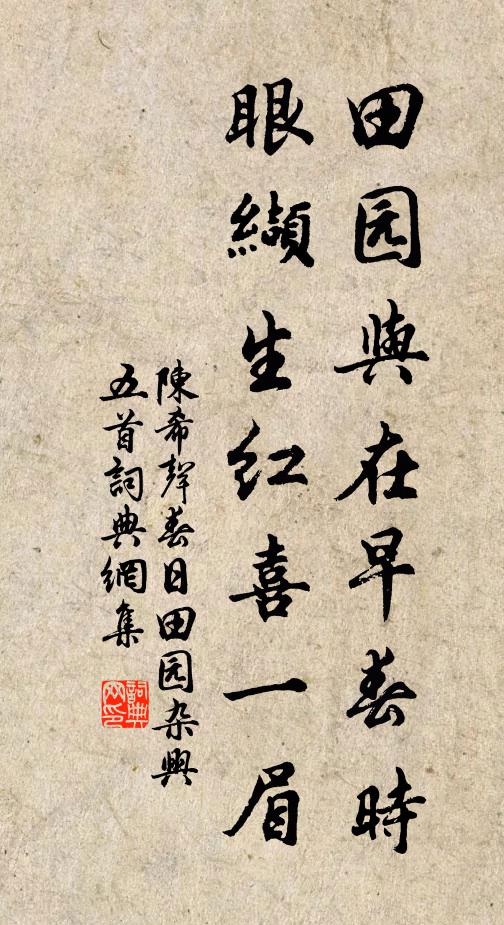 田园興在早春時
眼纈生红喜一眉
陳希聲春日田园杂興
五首詞典網集
詞典
网印